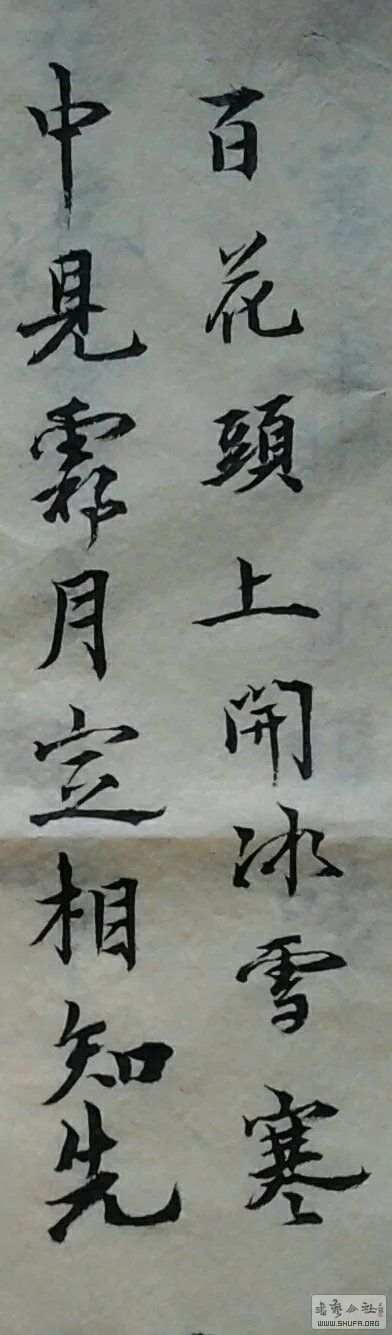 百花頭上開冰雪寒
中見霜月定相知先
WWW.SHUFA.ORG